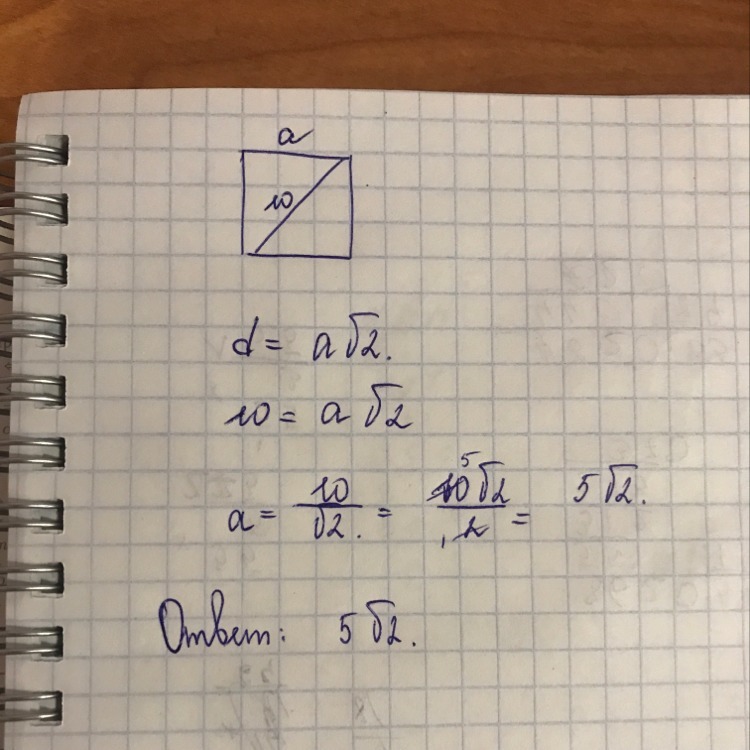 a
10
d = a√2.
10 = a√2
a = 10/√2. = 10√2/2 = 5√2.
5
1
Ответ: 5√2.